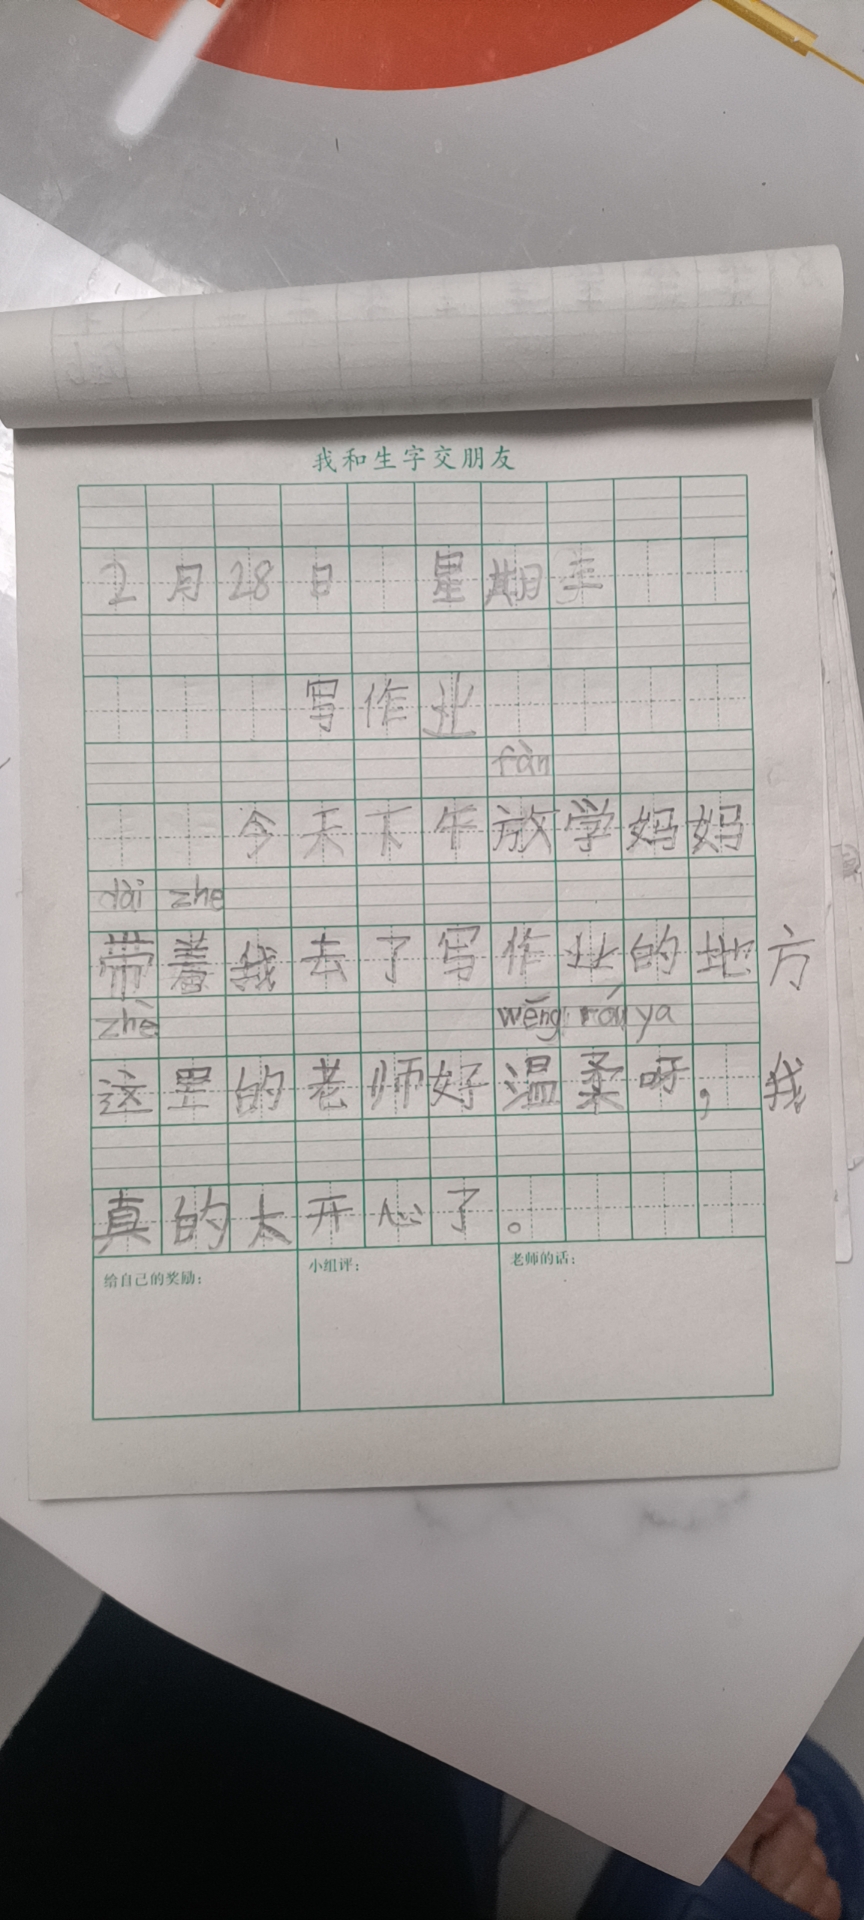 我和生字交朋友
2月28日 星期三
写作业
fàn
今天下午放学妈妈
dài zhe
带着我去了写作业的地方
zhè wēng róu ya
这里的老师好温柔呀，我
真的太开心了。
给自己的奖励： 小组评： 老师的话：